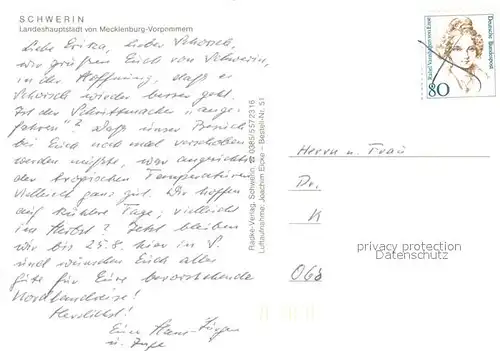 SCHWERIN
Landeshauptstadt von Mecklenburg-Vorpommern
Liebe Erika, lieber Schorsch,
wir grüßen Euch von Schwerin,
in der Hoffnung, daß es
Schorsch wieder besser geht.
Ist der Schrittmacher "ange-
fahren"? Daß unser Besuch
bei Euch noch mal verschoben
werden mußte, war angesichts
der tropischen Temperaturen
vielleicht ganz gut. Wir hoffen
auf kühlere Tage; vielleicht
im Herbst? Jetzt bleiben
wir bis 25.8. hier in S.
und wünschen Euch alles
Gute für Eure bevorstehende
Nordlandreise!
Herzlichst!
Eure Hans-Jürgen
u. Inge
Radke-Verlag, Schwerin, ☎ 0385/5572316
Luftaufnahme: Joachim Eicke – Bestell-Nr. 51
Deutsche Bundespost
Rahel Varnhagen von Ense
80
Herrn u. Frau
Dr.
K
068
privacy protection
Datenschutz